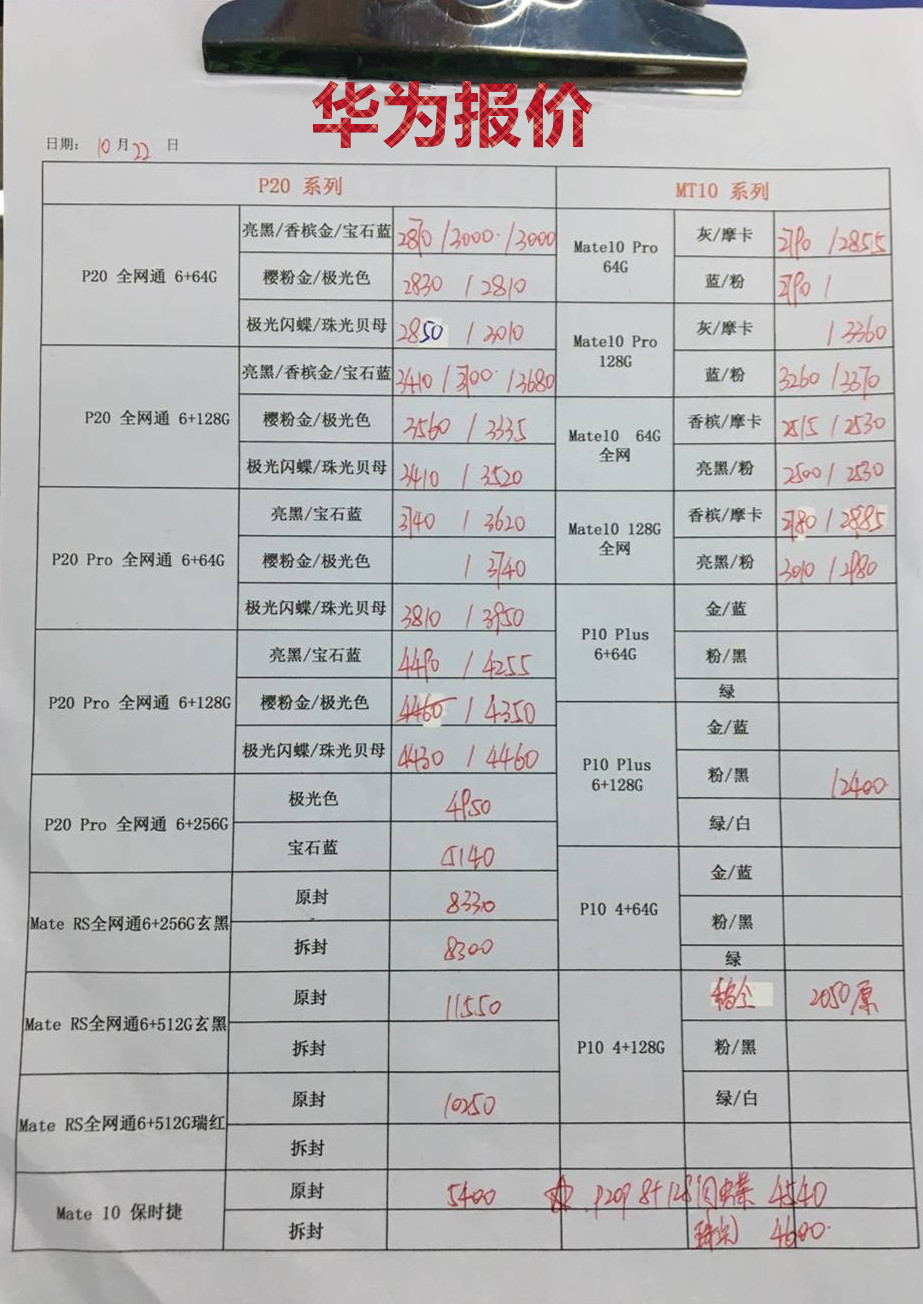 华为报价
日期: 10月22日
P20 系列 MT10 系列
P20 全网通 6+64G
亮黑/香槟金/宝石蓝 /3000/3000
樱粉金/极光色 2830/2810
极光闪蝶/珠光贝母 2850/3010
P20 全网通 6+128G
亮黑/香槟金/宝石蓝 3410/3700/3680
樱粉金/极光色 3560/3335
极光闪蝶/珠光贝母 3410/3520
P20 Pro 全网通 6+64G
亮黑/宝石蓝 3740/3620
樱粉金/极光色 /3740
极光闪蝶/珠光贝母 3810/3950
P20 Pro 全网通 6+128G
亮黑/宝石蓝 4490/4255
樱粉金/极光色 4460/4350
极光闪蝶/珠光贝母 4430/4460
P20 Pro 全网通 6+256G
极光色 4950
宝石蓝 5140
Mate RS全网通6+256G玄黑
原封 8330
拆封 8300
Mate RS全网通6+512G玄黑
原封 11550
拆封
Mate RS全网通6+512G瑞红
原封 10250
拆封
Mate 10 保时捷
原封 5400
拆封
Mate10 Pro
64G
灰/摩卡 2790/2855
蓝/粉 2790/
Mate10 Pro
128G
灰/摩卡 /3360
蓝/粉 3260/3370
Mate10 64G
全网
香槟/摩卡 2515/2530
亮黑/粉 2500/2530
Mate10 128G
全网
香槟/摩卡 2780/2885
亮黑/粉 3010/2980
P10 Plus
6+64G
金/蓝
粉/黑
绿
P10 Plus
6+128G
金/蓝
粉/黑 /2400
绿/白
P10 4+64G
金/蓝
粉/黑
绿
P10 4+128G
2050原
粉/黑
绿/白
☆ P20P 8+128闪蝶 4540
4600